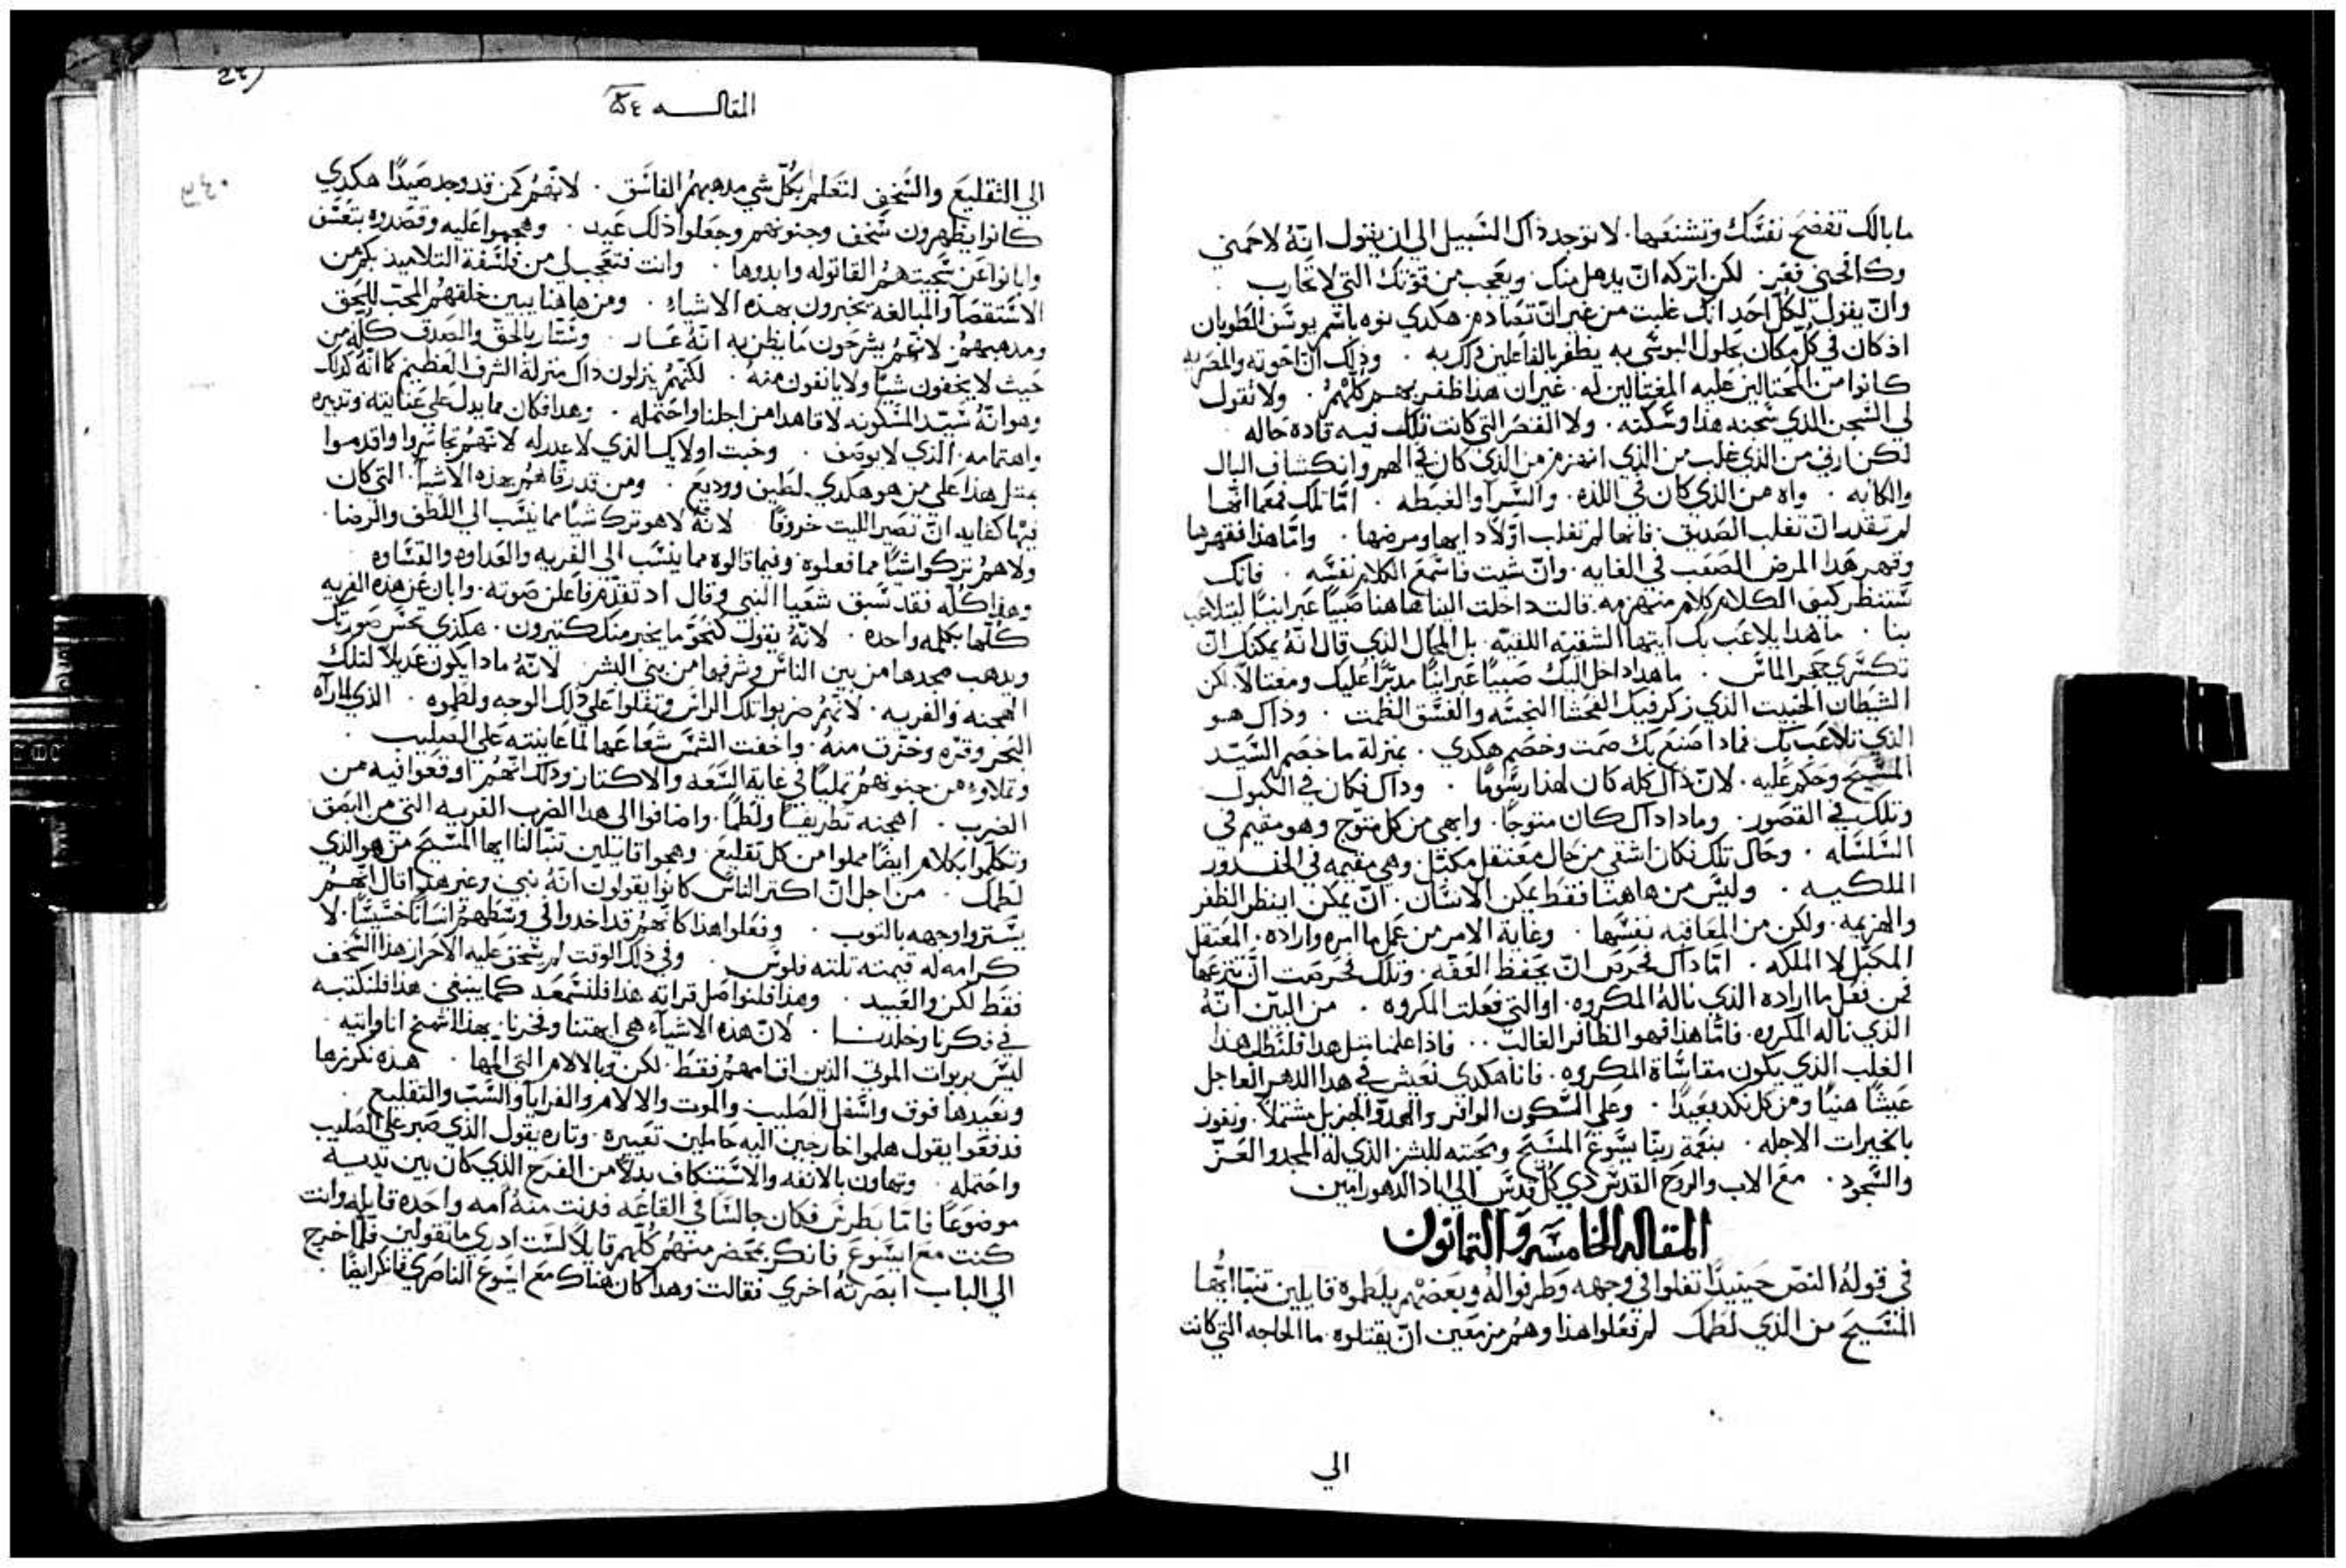 ما بالك تفضح نفسك وتشنعها. لا توجد ذاك السبيل الى ان يقول انه لا حمني
وكافحني فقير. لكن اتركه ان يدهل منك. ويعجب من قوتك التي لا تحارب.
وان يقول لكل احد انك غلبت من غير ان تصادم. هكدي نوه باسم يوسف الطوبان
اذ كان في كل مكان يحاول الموشى به يظفر بالفاعلين ذلك به. وذلك ان اخوته والمصريه
كانوا من المحتالين عليه المغتالين له. غير ان هذا ظفر بهم كلهم. ولا تقول
لي السجن الذي سجنه هذا وسكنه. ولا القصر التي كانت تلك فيه قاده حاله
لكن ارني من الذي غلب من الذي انهزم من الذي كان في الهم وانكشاف البال
والكابه. واه من الذي كان في اللذه. والسرآ والغبطه. اما تلك فمعما انها
لم تقدر ان تغلب الصديق. فانها لم تغلب اولا دايها ومرضها. واما هذا فقهرها
وقهر هذا المرض الصعب في الغايه. وان شيت فاسمع الكلام نفسه. فانك
ستنظر كيف الكلام كلام منهزمه. قالت داخلت الينا هاهنا صبيا عبرانيا ليتلاعب
بنا. ما هدا يلاعب بك ايتها الشقيه اللغيه. بل المحال الذي قال انه يمكنك ان
تكسري حجر الماس. ما هدا داخل اليك صبيا عبرانيا مدبرا عليك ومغتالا. لكن
الشيطان الخبيت الذي زكر فيك الفحشا النجسه والفسق الظمت. وذاك هو
الذي تلاعب بك فماذا صنع بك صمت وخصم هكدي. بمنزلة ما خصم السيد
المسيح وحكم عليه. لان ذاك كله كان لهذا رسوما. وداك فكان في الكبول
وتلك في القصور. وماذا داك كان متوجا. وابهى من كل متوج وهو مقيم في
السلسله. وحال تلك فكان اشقي من حال معتقل مكبل وهي مقيمه في الخدور
الملكيه. وليس من هاهنا فقط يمكن الانسان. ان يمكن اينظر الظفر
والهزيمه. ولكن من العاقبه نفسها. وغاية الامر من عمل ما امره واراده. المعتقل
المكبل لا الملكه. اما داك فحرص ان يحفظ العفه. وتلك فحرصت ان تنزعها
فمن فعل ما اراده الذي ناله المكروه. او التي فعلت المكروه. من البين انه
الذي ناله المكروه. فاما هذا فهو الظافر الغالب.. فاذا علمنا متل هدا فلنطلب هدا
الغلب الذي يكون مقاساة المكروه. فانا هكدي نعيش في هدا الدهر العاجل
عيشا هنيا ومن كل نكد بعيدا. وعلي السكون الوافر والهدو الجزيل مشتملا. ونفوز
بالخيرات الاجله. بنعمة ربنا يسوع المسيح ومحبته للبشر الذي له المجد والعز
والسجود. مع الاب والروح القدس دي كل قدس الي اباد الدهور امين
المقاله الخامسه والتمانون
في قوله النص حينيدا تفلوا في وجهه وطرفوا له وبعضهم يلطموه قايلين تنبا ايها
المسيح من الذي لطمك لم تعلوا هذا وهم مزمعين ان يقتلوه. ما الحاجه التي كانت
الي
المقاله ٨٤
الي التقليع والسخف لتعلم بكل شي مدهبهم الفاسق. لانهم كمن قد وجد صيدا هكدي
كانوا يظهرون سخف وجنونهم وجعلوا ذلك عيد. وهجموا عليه وقصدوه بتعسف
وابانوا عن سجيتهم القاتوله وابدوها. وانت فتعجب لي من فلسفة التلاميذ بكم من
الاستقصآ والمبالغه يخبرون بهذه الاشياء. ومن هاهنا يبين خلقهم المحب للحق
ومدهبهم. لانهم يشرحون ما يظن به انه عار. وستار بالحق والصدق كله من
حيث لا يخفون شيا ولا يانفون منه. لكنهم ينزلون داك منزلة الشرف العظيم كما انه كدلك
وهو انه سيد المسكونه لاقا هدا من اجلنا واحتمله. وهدا فكان مما يدل علي عنايته وتدبيره
واهتمامه. الذي لا يوصف. وخبت اولايك الذي لا عدر له لانهم تجاسروا واقدموا
بمتل هذا علي من هو هكدي لطين ووديع. ومن قد رقاهم بهذه الاشيآ. التي كان
فيها كفايه ان تصير الليت خروفا. لانه لا هو ترك شيا مما ينسب الي اللطف والرضا.
ولا هم تركوا شيا مما فعلوه وفيما قالوه مما ينسب الى الفريه والعداوه والقساوه
وهدا كله فقد سبق شعيا النبي وقال اد تقدم فاعلن صوته. وابان عن هذه الفريه
كلها بكلمه واحده. لانه يقول كنحو ما يخبر منك كتيرون. هكذي يحتس صورتك
ويدهب مجدها من بين الناس وشرفها من بني البشر. لانه مادا يكون عديلا لتلك
الهجنه والفريه. لانهم ضربوا تلك الراس وتفلوا علي ذلك الوجه ولطموه. الذي لما راه
البحر وقره وخترف منه. واخفت الشمس شعاعها لما عاينته علي الصليب.
وتملاوه من جنونهم تمليا في غاية السعه والاكتار وذلك انهم اوقعوا فيه من
الضرب. اهجنه تطريفا ولطما. واضافوا الى هدا الضرب الفريه التي من البصق
وتكلموا بكلام ايضا مملوا من كل تقليع. وهموا قايلين تنبا لنا ايها المسيح من هو الذي
لطمك. من اجل ان اكتر الناس كانوا يقولون انه نبي وغير هدا قال انهم
يستروا وجهه بالتوب. وفعلوا هذا كانهم قد اخدوا في وسطهم انسانا خسيسا. لا
كرامه له قيمته تلته فلوس. وفي ذلك الوقت لم سخف عليه الاحرار هذا السخف
فقط لكن والعبيد. وهذا فلنواصل قراته هذا فلنسمعه كما ينبغي هذا فلنكتبه
في فكرنا وخلدنا. لان هذه الاشيآء هي ابهتنا وفخرنا. بهذا اشمخ انا واتيه
ليس بربوات الموتي الذين اقامهم فقط. لكن وبالالام التي المها. هذه نكررها
ونعيدها فوق واسفل الصليب والموت والالام والفرايا والسب والتقليع.
فدفعوا يقول هلموا خارجين اليه حاملين تعييره. وتاره يقول الذي صبر علي الصليب
واحتمله. وتهاون بالانفه والاستنكاف بدلا من الفرح الذي كان بين يديه
موضوعا فاما بطرس فكان جالسا في القاعه فدنت منه امه واحده قايله وانت
كنت مع ايسوع فانكر بمحضر منهم كلهم قايلا لست ادري ما تقولين فلما خرج
الي الباب ابصرته اخري فقالت وهدا كان هناك مع ايسوع الناصري فانكر ايضا